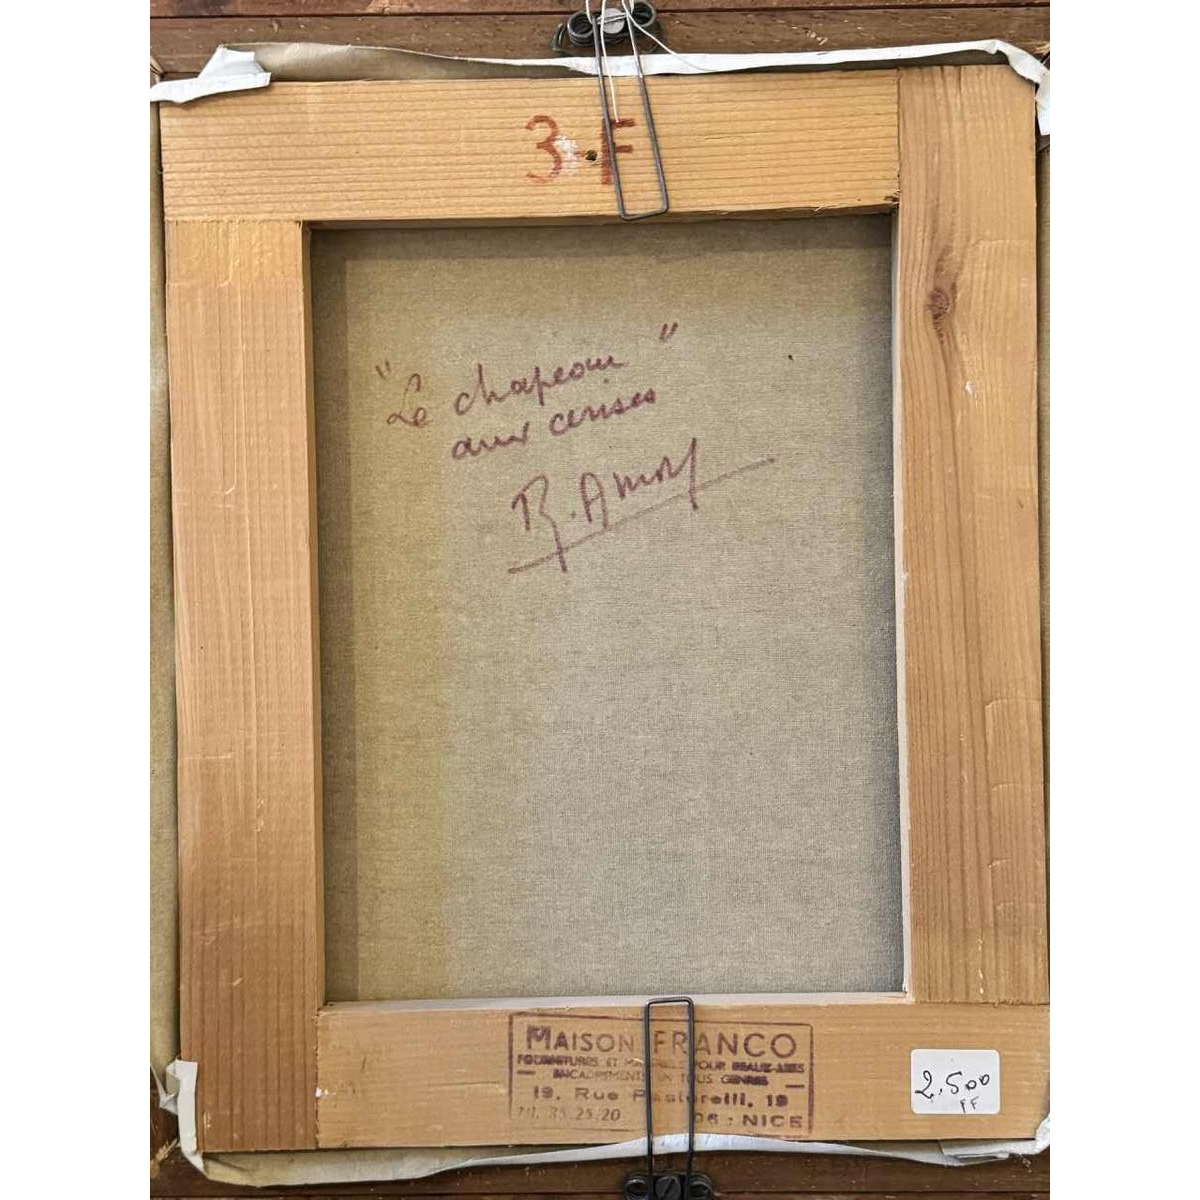 3-F
"Le chapeau"
aux cerises
MAISON FRANCO
FOURNITURES ET POUR BEAUX-ARTS
— ENCADREMENTS EN TOUS GENRES —
19, Rue Pastorelli, 19
Tél. 85.25.20 06 - NICE
2.500
FF